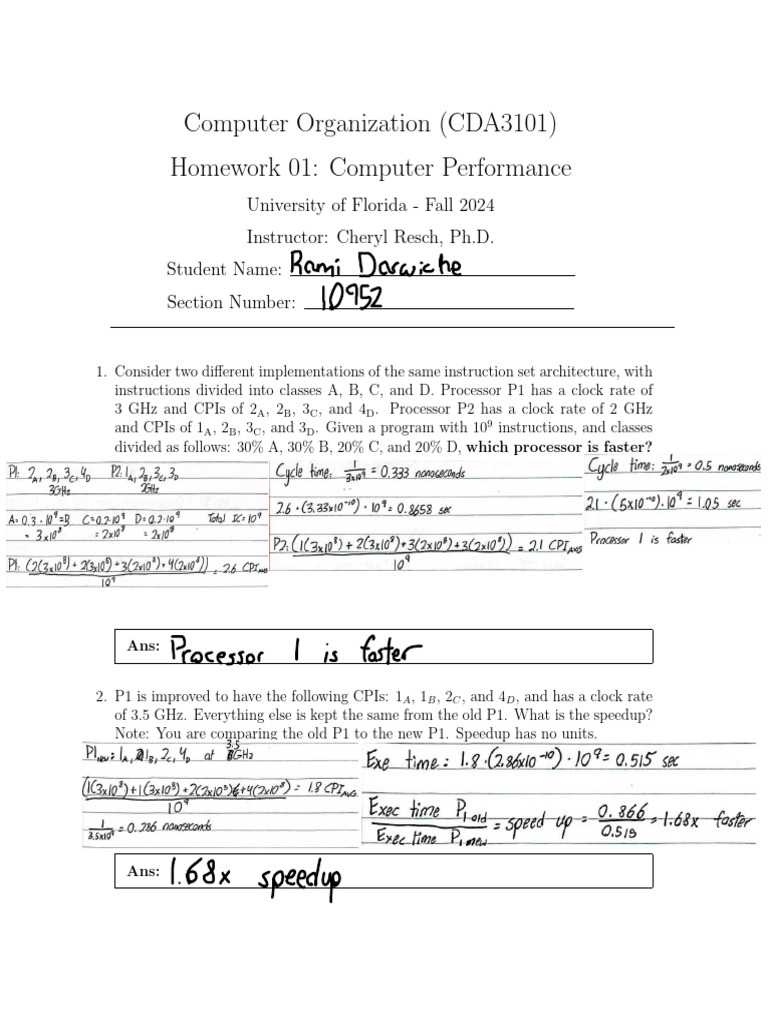 Computer Organization (CDA3101)
Homework 01: Computer Performance
University of Florida - Fall 2024
Instructor: Cheryl Resch, Ph.D.
Student Name: Rami Darwiche
Section Number: 10952
1. Consider two different implementations of the same instruction set architecture, with
instructions divided into classes A, B, C, and D. Processor P1 has a clock rate of
3 GHz and CPIs of 2A, 2B, 3C, and 4D. Processor P2 has a clock rate of 2 GHz
and CPIs of 1A, 2B, 3C, and 3D. Given a program with 10⁹ instructions, and classes
divided as follows: 30% A, 30% B, 20% C, and 20% D, which processor is faster?
P1: 2A, 2B, 3C, 4D P2: 1A, 2B, 3C, 3D
3GHz 2GHz
A = 0.3 · 10⁹ = B C = 0.2·10⁹ D = 0.2·10⁹ Total IC = 10⁹
= 3x10⁸ = 2x10⁸ = 2x10⁸
P1: (2(3x10⁸) + 2(3x10⁸) + 3(2x10⁸) + 4(2x10⁸)) = 2.6 CPI AVG
10⁹
Cycle time: 1/3x10⁹ = 0.333 nanoseconds
2.6 · (3.33x10⁻¹⁰) · 10⁹ = 0.8658 sec
P2: (1(3x10⁸) + 2(3x10⁸) + 3(2x10⁸) + 3(2x10⁸)) = 2.1 CPI AVG
10⁹
Cycle time: 1/2x10⁹ = 0.5 nanoseconds
2.1 · (5x10⁻¹⁰) · 10⁹ = 1.05 sec
Processor 1 is faster
Ans: Processor 1 is faster
2. P1 is improved to have the following CPIs: 1A, 1B, 2C, and 4D, and has a clock rate
of 3.5 GHz. Everything else is kept the same from the old P1. What is the speedup?
Note: You are comparing the old P1 to the new P1. Speedup has no units.
P1new: 1A, 1B, 2C, 4D at 3.5 GHz
(1(3x10⁸) + 1(3x10⁸) + 2(2x10⁸) + 4(2x10⁸)) = 1.8 CPI AVG
10⁹
1/3.5x10⁹ = 0.286 nanoseconds
Exe time: 1.8 · (2.86x10⁻¹⁰) · 10⁹ = 0.515 sec
Exec time P1 old / Exec time P1 new = speed up = 0.866 / 0.515 = 1.68x faster
Ans: 1.68x speedup